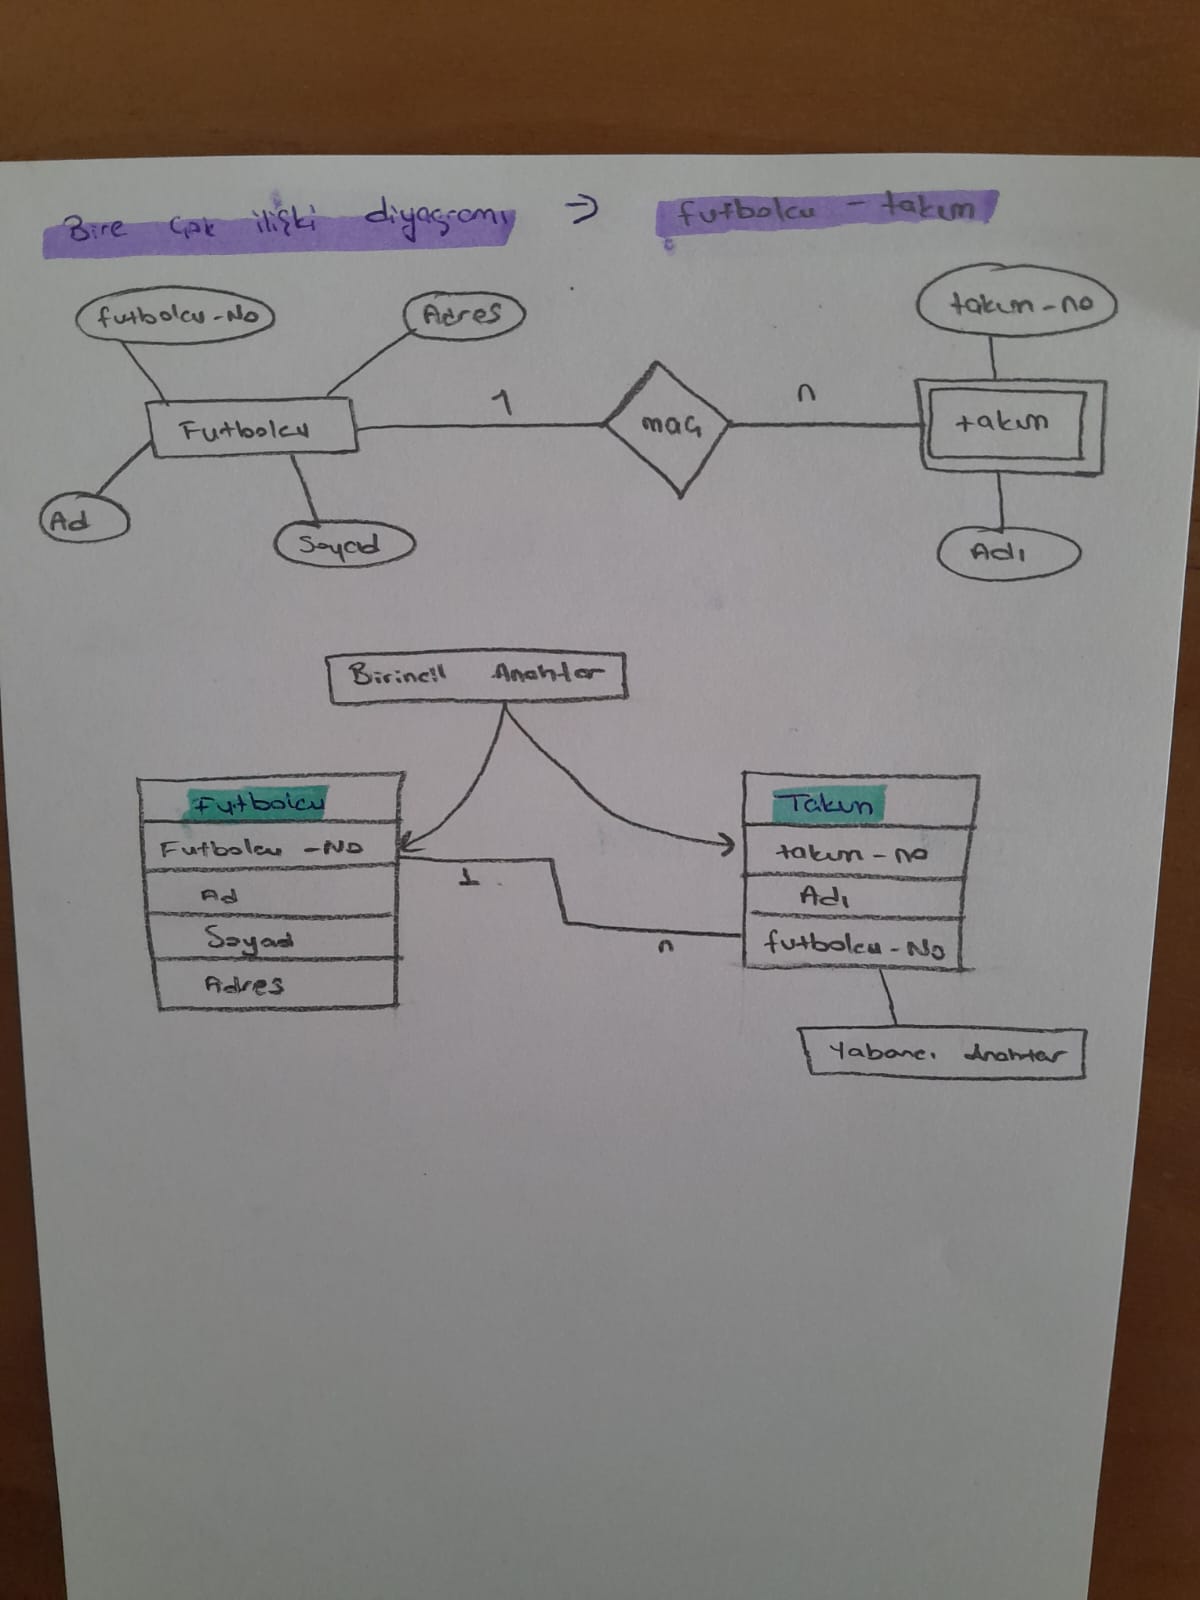 Bire çok ilişki diyagramı → futbolcu - takım
futbolcu-No
Adres
takım-no
Futbolcu
1
maç
n
takım
Ad
Soyad
Adı
Birincil Anahtar
Futbolcu
Takım
Futbolcu -No
takım-no
1
Ad
Adı
Soyad
n
futbolcu-No
Adres
Yabancı Anahtar